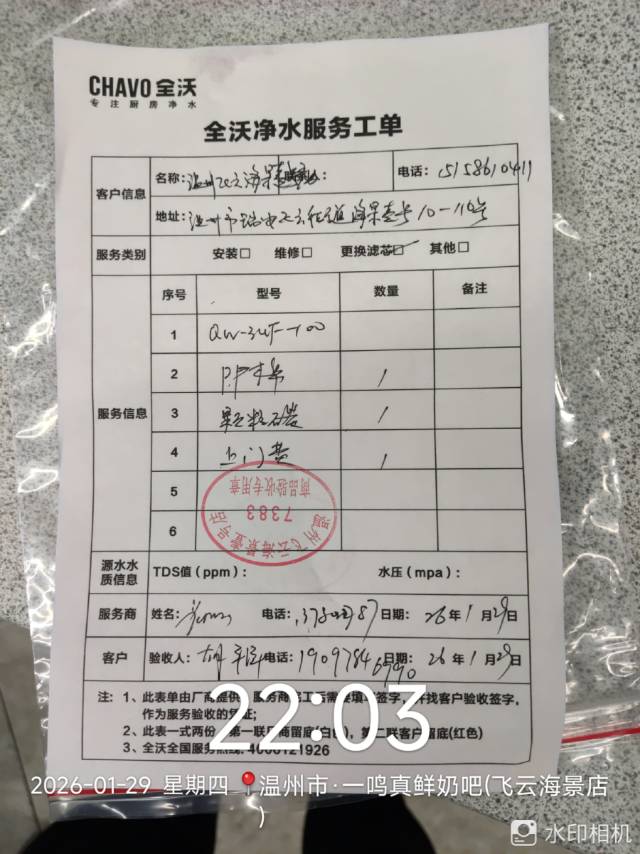 CHAVO 全沃
专注厨房净水
全沃净水服务工单
客户信息
名称：温州飞云海景壹号
电话：15158610411
地址：温州市瑞安飞云街道海景壹号10-110号
服务类别
安装□ 维修□ 更换滤芯☑ 其他□
服务信息
序号 型号 数量 备注
1 QW-3UF-400
2 PP棉 1
3 颗粒碳 1
4 上门费 1
5
6
温州飞云海景壹号店
7383
商品验收专用章
源水水质信息
TDS值（ppm）： 水压（mpa）：
服务商 姓名： 电话： 日期：26年1月29日
客户 验收人： 电话：19097846990 日期：26年1月29日
注：1、此表单由厂商提供，服务商务工后需要填写签字，并找客户验收签字，
作为服务验收的凭证；
2、此表一式两份，第一联厂商留底(白色)，第二联客户留底(红色)
3、全沃全国服务热线：4000121926
22:03
2026-01-29 星期四 温州市·一鸣真鲜奶吧(飞云海景店
)
水印相机